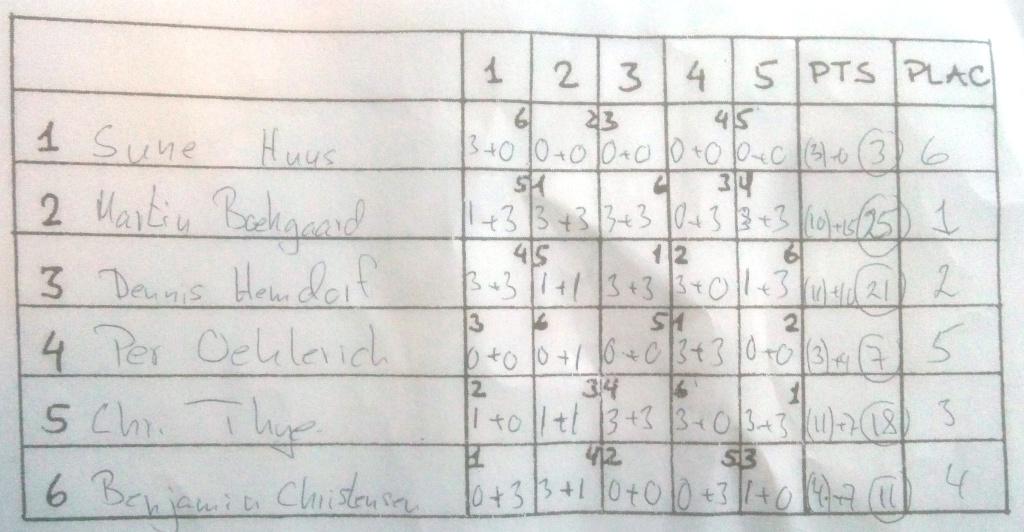 1 2 3 4 5 PTS PLAC
6 2 3 4 5
1 Sune Huus 3+0 0+0 0+0 0+0 0+0 (3)+0 3 6
5 1 6 3 4
2 Martin Bækgaard 1+3 3+3 3+3 0+3 3+3 (10)+15 25 1
4 5 1 2 6
3 Dennis Hemdorf 3+3 1+1 3+3 3+0 1+3 (11)+10 21 2
3 6 5 1 2
4 Per Oehlerich 0+0 0+1 0+0 3+3 0+0 (3)+4 7 5
2 3 4 6 1
5 Chr. Thye 1+0 1+1 3+3 3+0 3+3 (11)+7 18 3
1 4 2 5 3
6 Benjamin Christensen 0+3 3+1 0+0 0+3 1+0 (4)+7 11 4